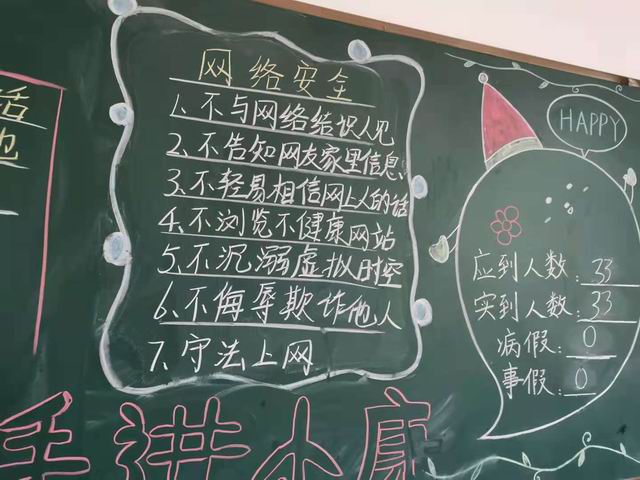 话
网络安全
1、不与网络结识人见
2、不告知网友家里信息
3、不轻易相信网上人的话
4、不浏览不健康网站
5、不沉溺虚拟时空
6、不侮辱欺诈他人
7、守法上网
HAPPY
应到人数：33
实到人数：33
病假：0
事假：0
进小康